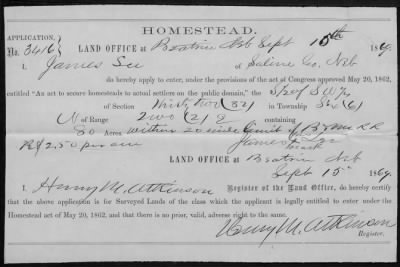 HOMESTEAD.
APPLICATION,
No. 3416 LAND OFFICE at Beatrice Neb Sept 15th 1869.
I, James Lee of Saline Co. Neb
do hereby apply to enter, under the provisions of the act of Congress approved May 20, 1862,
entitled "An act to secure homesteads to actual settlers on the public domain," the S/2 of SW/4
of Section Thirty two (32) in Township Six (6)
N of Range Two (2) E containing
80 Acres. within 20 mile limit of B & RR
R $2.50 per acre James Lee
mark
LAND OFFICE at Beatrice Neb
Sept 15" 1869.
I, Henry M. Atkinson Register of the Land Office, do hereby certify
that the above application is for Surveyed Lands of the class which the applicant is legally entitled to enter under the
Homestead act of May 20, 1862, and that there is no prior, valid, adverse right to the same.
Henry M. Atkinson
Register.